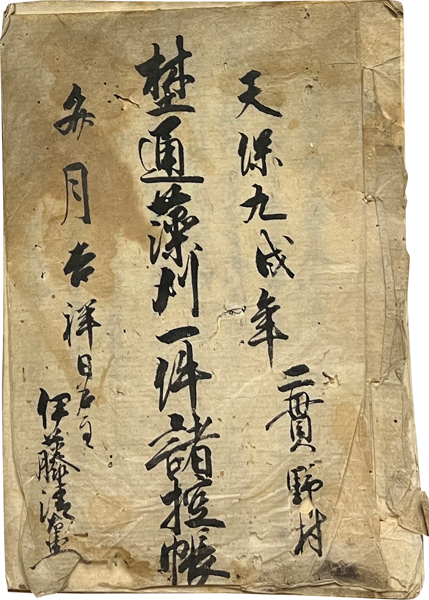 天保九戌年
二貫野村
埜通藻刈一件諸控帳
毎月吉祥日
伊藤清